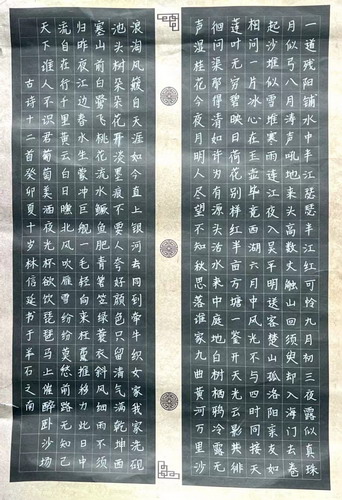 一道残阳铺水中半江瑟瑟半江红可怜九月初三夜露似真珠
月似弓八月涛声吼地来头高数丈触山回须臾却入海门去卷
起沙堆似雪堆寒雨连江夜入吴平明送客楚山孤洛阳亲友如
相问一片冰心在玉壶毕竟西湖六月中风光不与四时同接天
莲叶无穷碧映日荷花别样红半亩方塘一鉴开天光云影共徘
徊问渠那得清如许为有源头活水来中庭地白树栖鸦冷露无
声湿桂花今夜月明人尽望不知秋思落谁家九曲黄河万里沙
浪淘风簸自天涯如今直上银河去同到牵牛织女家我家洗砚
池头树朵朵花开淡墨痕不要人夸好颜色只留清气满乾坤西
塞山前白鹭飞桃花流水鳜鱼肥青箬笠绿蓑衣斜风细雨不须
归昨夜江边春水生蒙冲巨舰一毛轻向来枉费推移力此日中
流自在行千里黄云白日曛北风吹雁雪纷纷莫愁前路无知己
天下谁人不识君葡萄美酒夜光杯欲饮琵琶马上催醉卧沙场
古诗十二首癸卯夏十岁林信延书于羊石之南